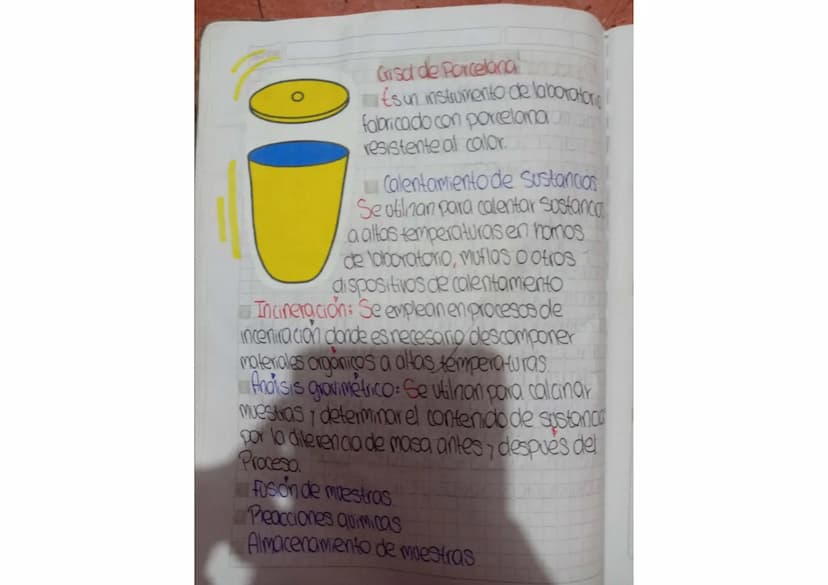 Crisol de Porcelana
Es un instrumento de laboratorio
fabricado con porcelana
resistente al calor.
Calentamiento de Sustancias
Se utilizan para calentar sustancia
a altas temperaturas en hornos
de laboratorio, muflas o otros
dispositivos de calentamiento
Incineración: Se emplean en procesos de
inceniración donde es necesario descomponer
materiales orgánicos a altas temperaturas.
Análisis gravimétrico: Se utilizan para calcinar
muestras y determinar el contenido de sustancia
por la diferencia de masa antes y después del
Proceso.
Fusión de muestras
Reacciones químicas
Almacenamiento de muestras